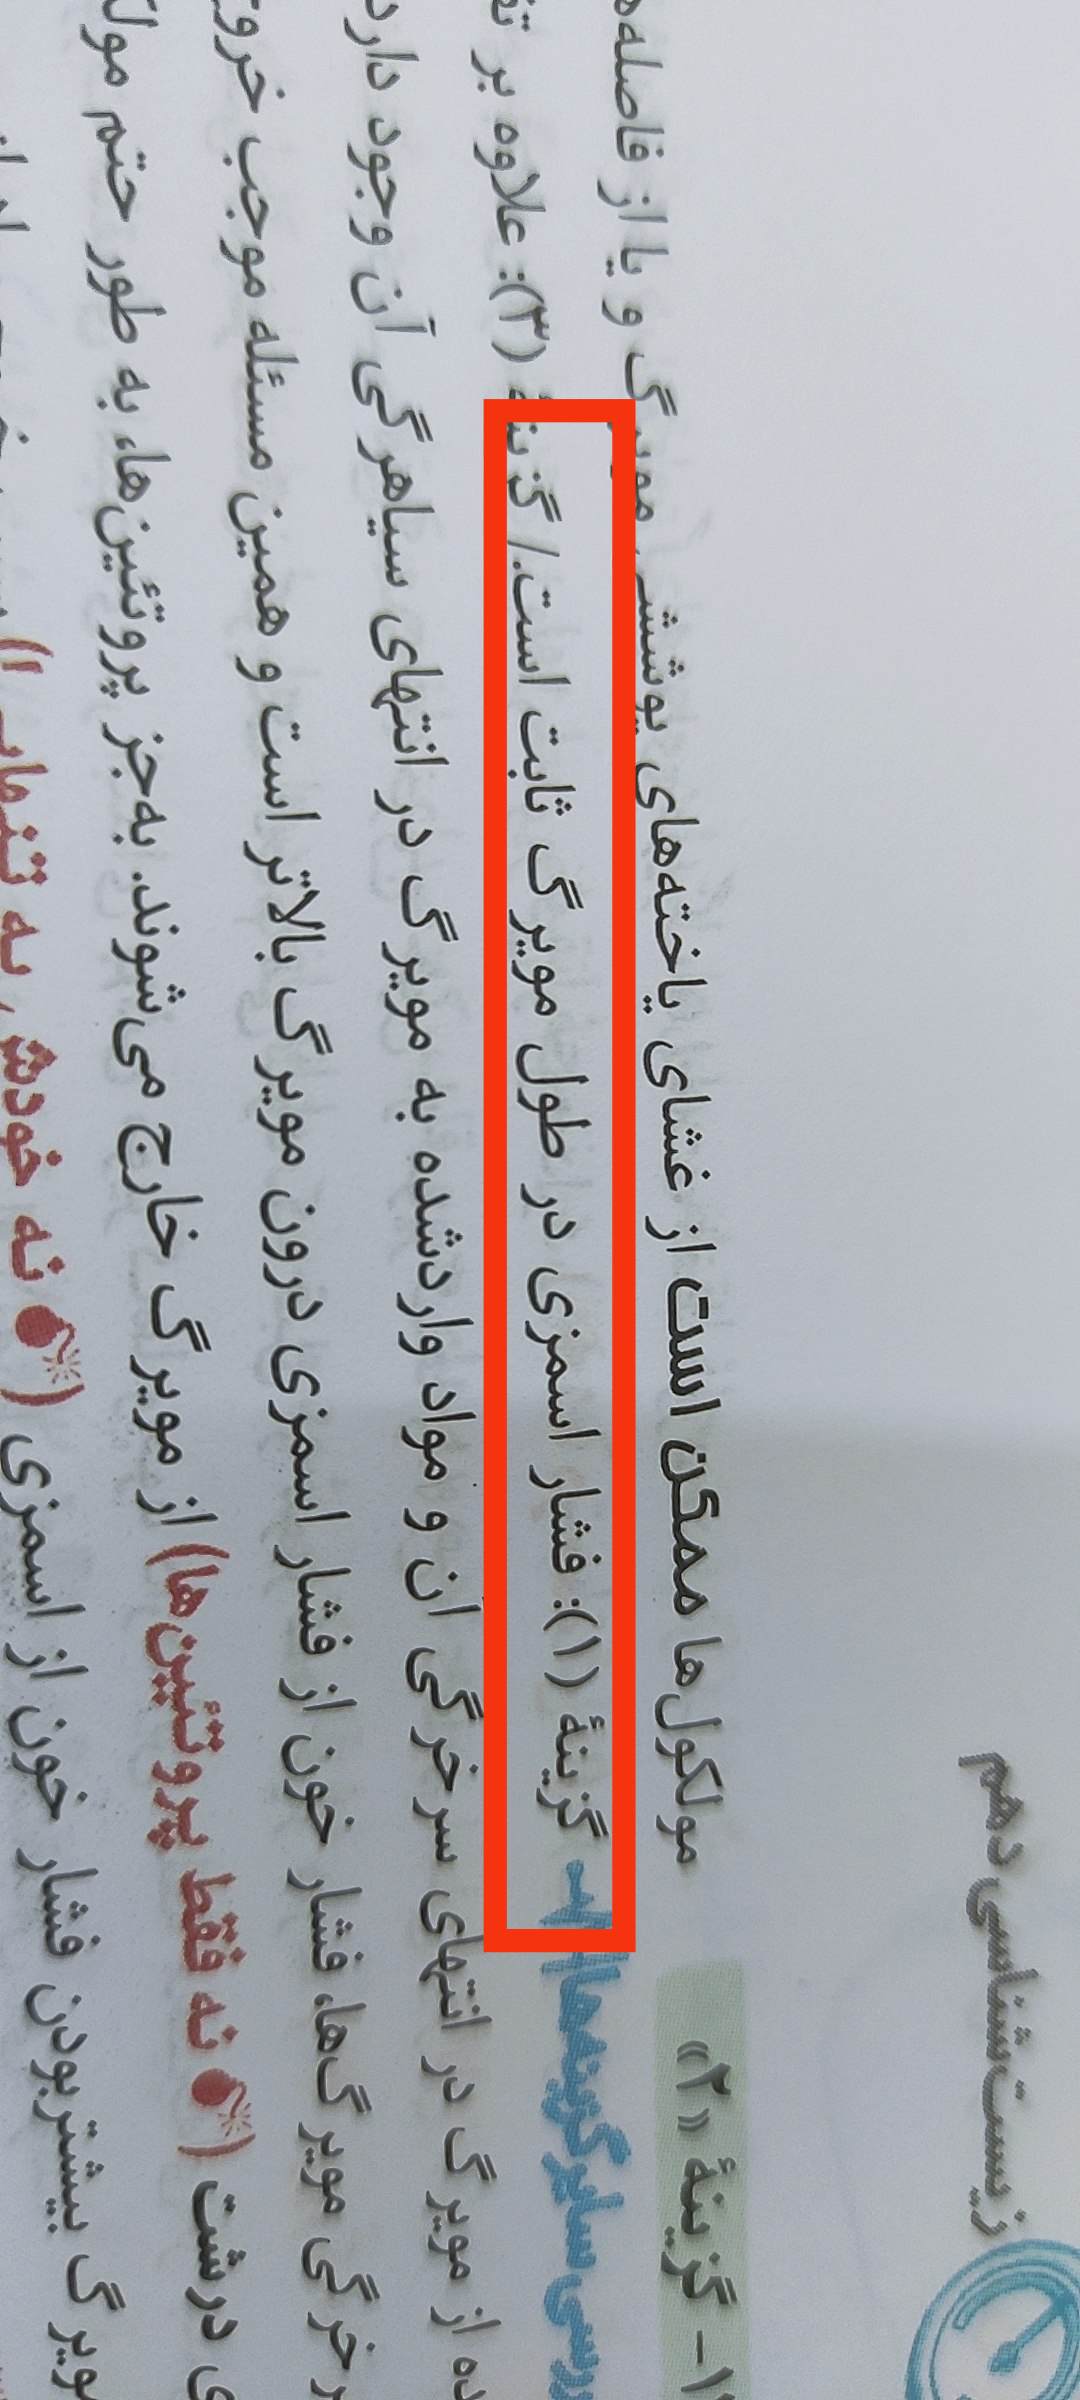 زیست‌شناسی دهم
۱- گزینهٔ «۲» مولکول‌ها ممکن است از غشای یاخته‌های پوششی مویرگ و یا از
سایر گزینه‌ها: گزینهٔ (۱): فشار اسمزی در طول مویرگ ثابت است. / گزینهٔ (۳): علاوه بر
از مویرگ در انتهای سرخرگی آن و مواد واردشده به مویرگ در انتهای سیاهرگی آن وجود دارد
مویرگ‌ها، فشار خون از فشار اسمزی درون مویرگ بالاتر است و همین مسئله موجب
درشت (نه فقط پروتئین‌ها) از مویرگ خارج می‌شوند. به‌جز پروتئین‌ها، به طور حتم
بیشتربودن فشار خون از اسمزی (نه خودش به